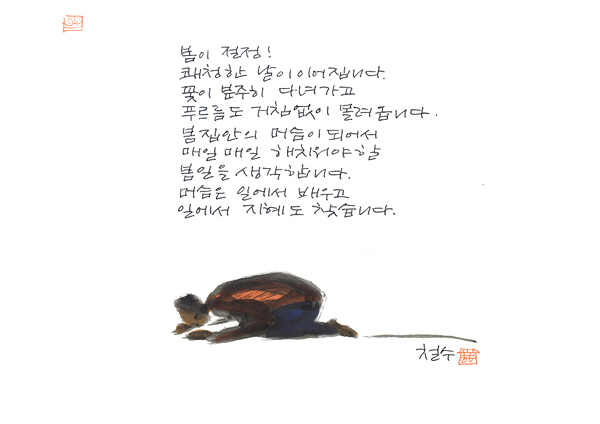 봄이 절정!
쾌청한 날이 이어집니다.
꽃이 분주히 다녀가고
푸르름도 거침없이 몰려옵니다.
봄 집안의 머슴이 되어서
매일 매일 해치워야 할
봄일을 생각합니다.
머슴은 일에서 배우고
일에서 지혜도 찾습니다.
철수